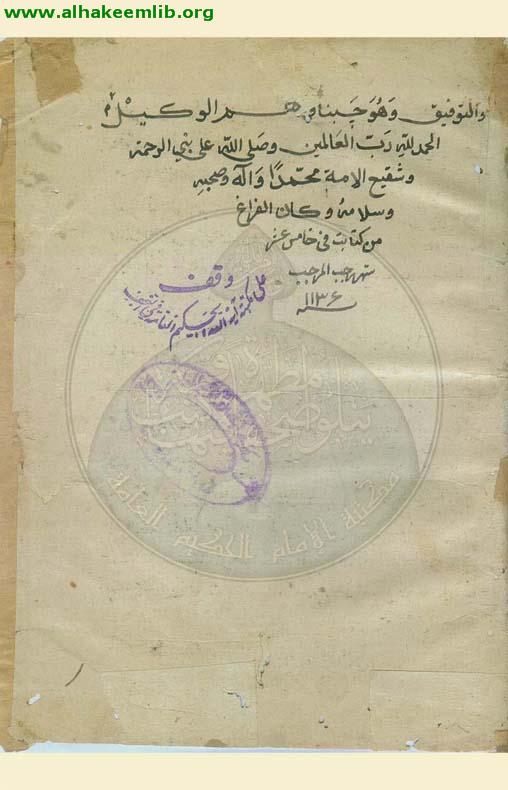 www.alhakeemlib.org
والتوفيق وهو حسبنا ونعم الوكيل م
الحمد لله رب العالمين وصلى الله على نبي الرحمة
وشفيع الامة محمد وآله وصحبه
وسلامه وكان الفراغ
من كتابت في خامس عشر
شهر رجب المرجب
١١٣٦ سنه
وقف
على مكتبة آية الله الحكيم العامة في النجف
مكتبة الإمام الحكيم العامة